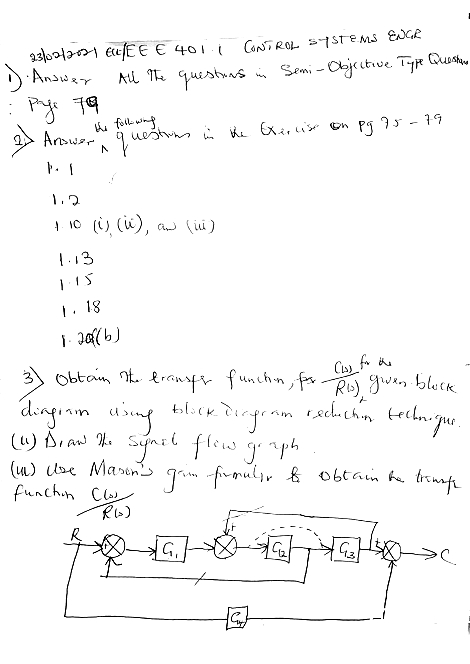 23/02/2021 ELE/EEE 401.1 CONTROL SYSTEMS ENGR
1) Answer All the questions in Semi-Objective Type Question
: Page 79
2) Answer the following questions in the Exercise on pg 75 - 79
1.1
1.2
1.10 (i), (ii), and (iii)
1.13
1.15
1.18
1.20(b)
3) Obtain the transfer function, C(s)/R(s) for the given block
diagram using block diagram reduction technique.
(ii) Draw the signal flow graph.
(iii) Use Mason's gain formular to obtain the transfer
function C(s)/R(s)
R + G1 + G2 G3 + C
-
G4 -